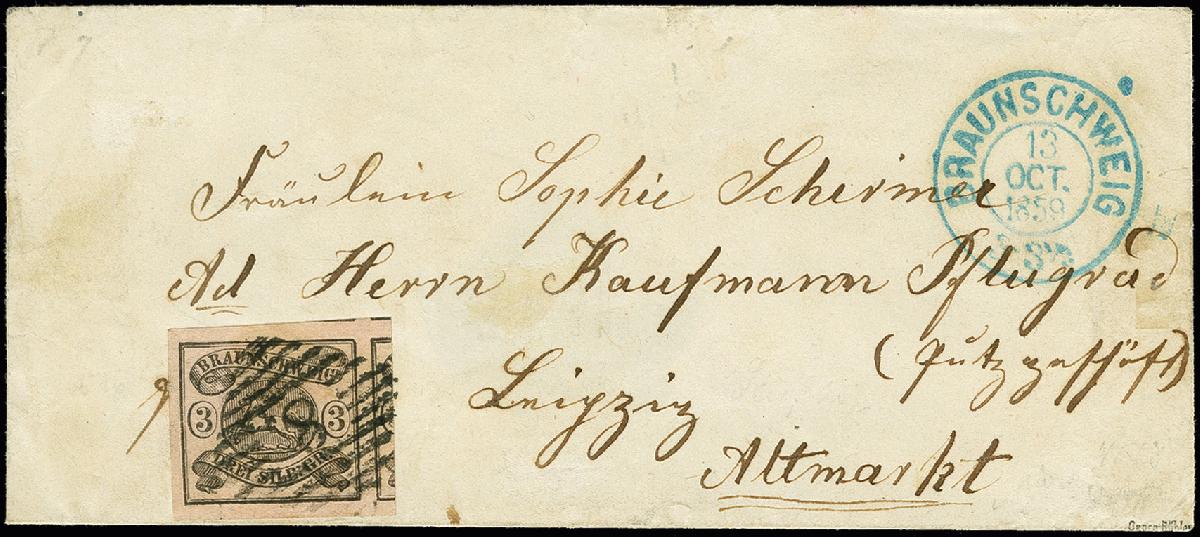 BRAUNSCHWEIG
13
OCT.
1859
Fräulein Sophie Schirmer
Ad Herrn Kaufmann Pflugrad
(Putzgeschäft)
Leipzig
Altmarkt
BRAUNSCHWEIG
3 3
DREI SILB. GR.
8